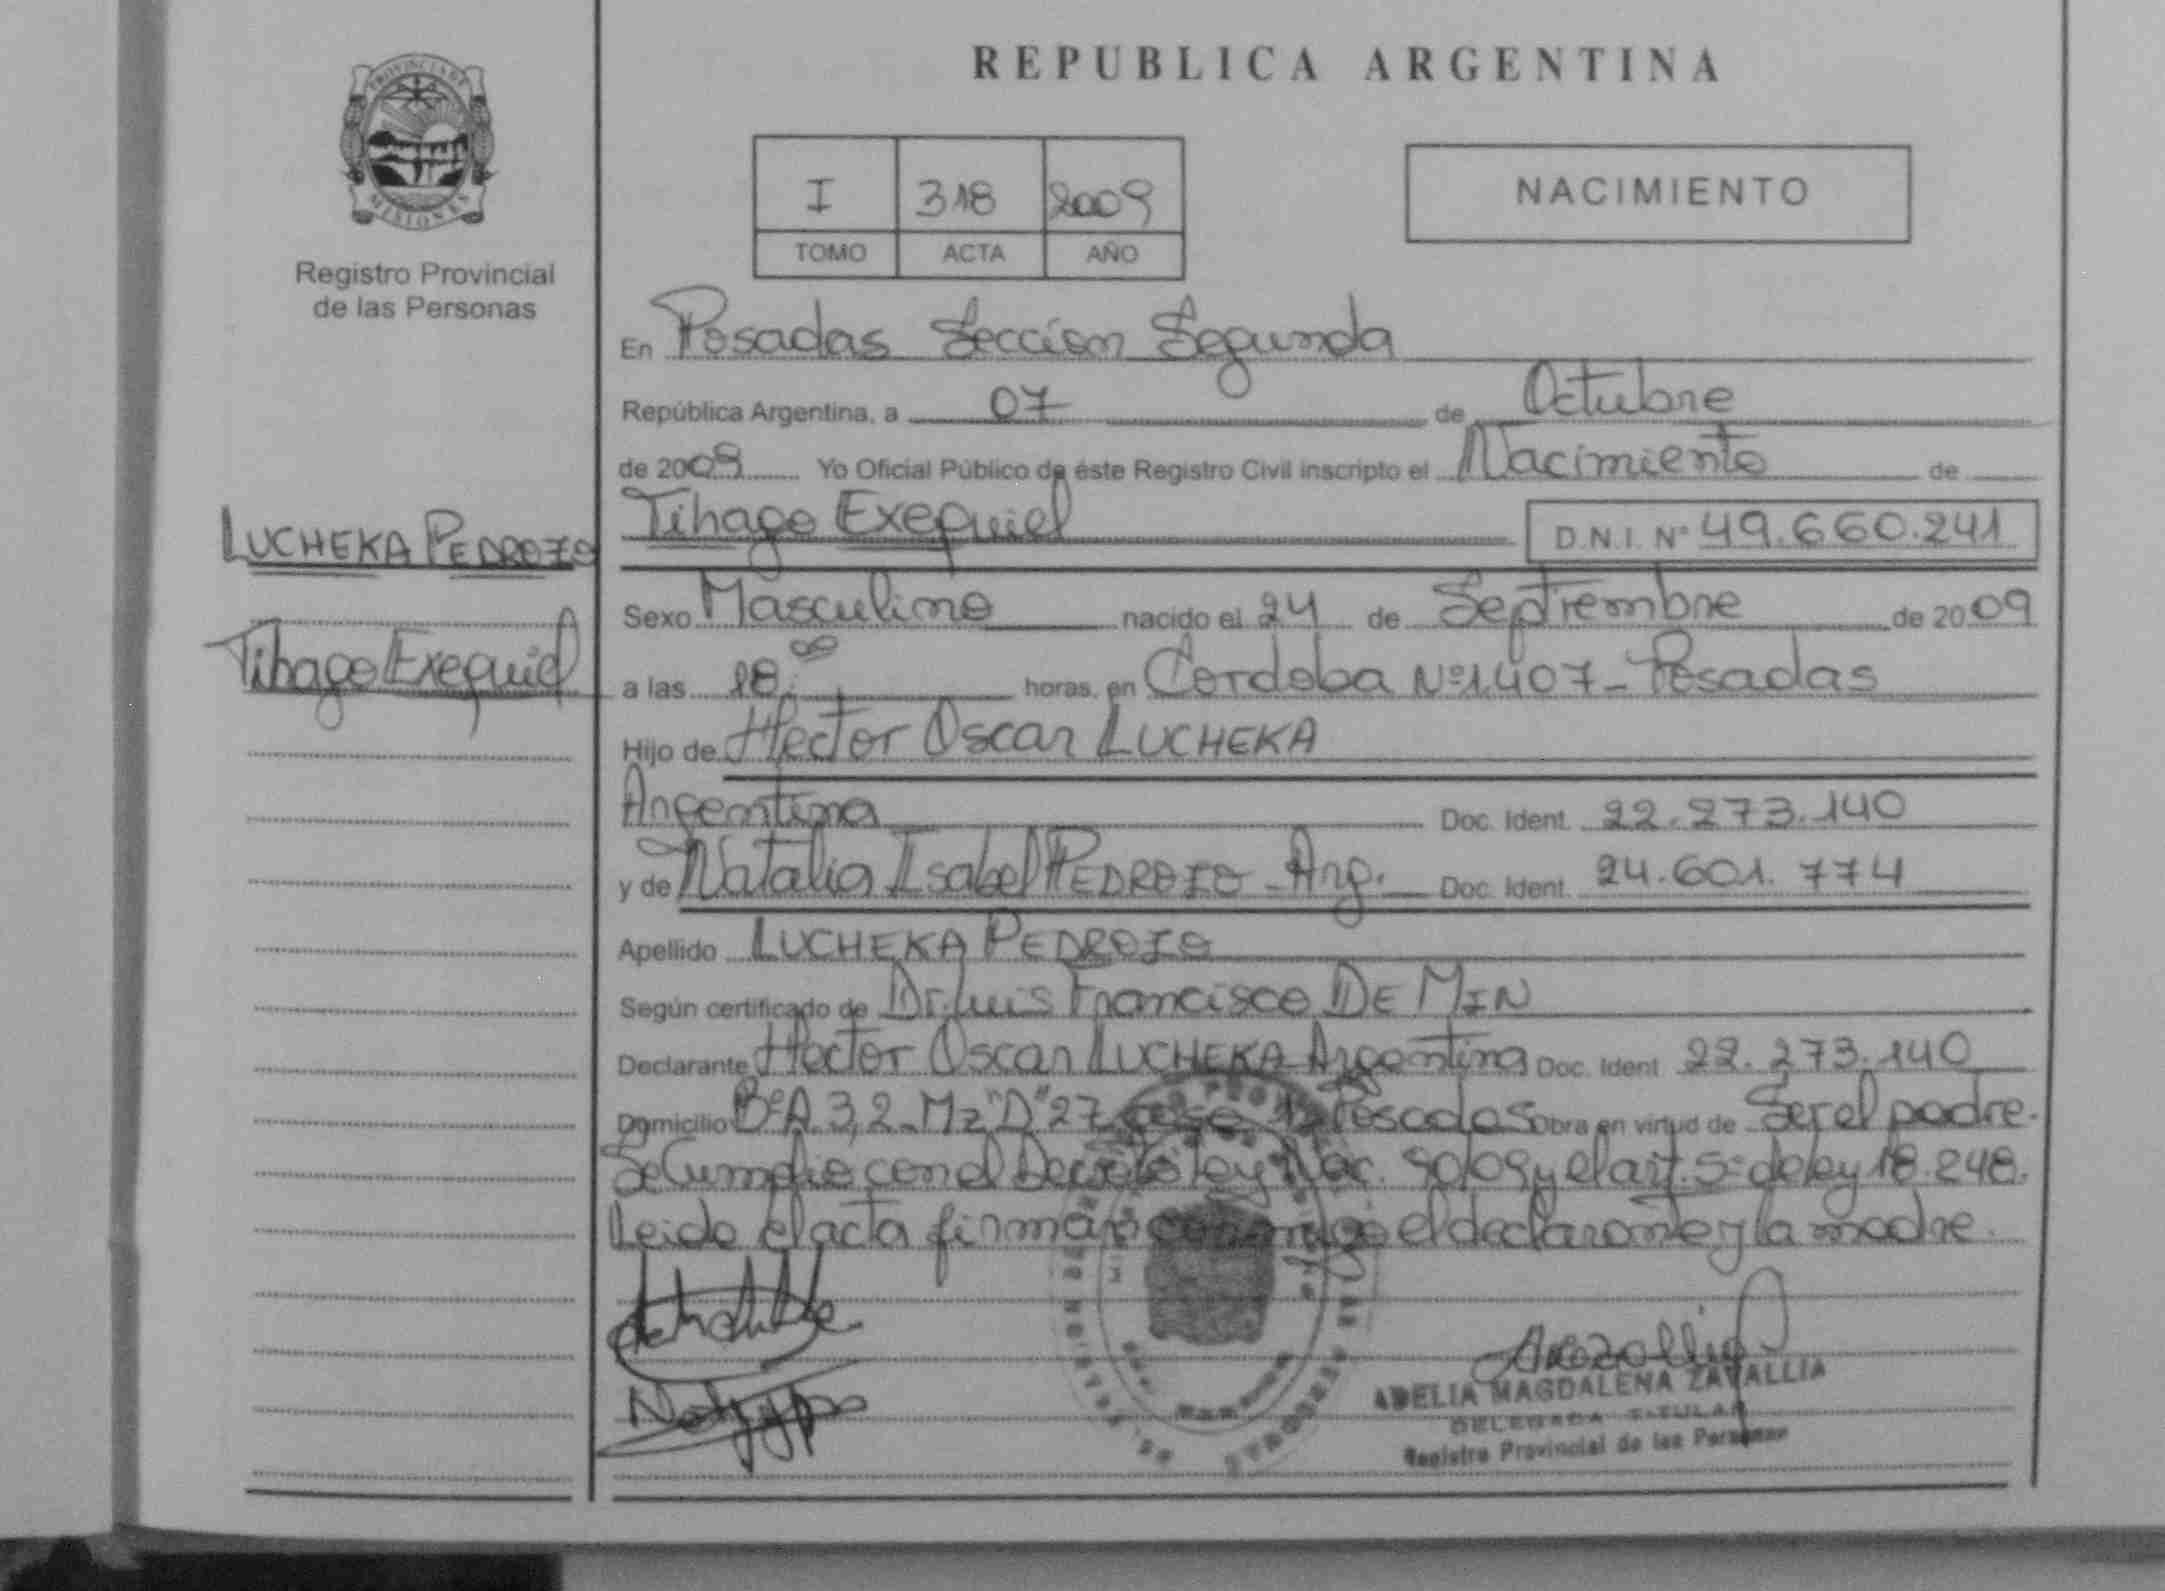 PROVINCIA DE
MISIONES
Registro Provincial
de las Personas
LUCHEKA PEDROZO
Tihago Exequiel
REPUBLICA ARGENTINA
I 318 2009
TOMO ACTA AÑO
NACIMIENTO
En Posadas Sección Segunda
República Argentina, a 07 de Octubre
de 2009 Yo Oficial Público de éste Registro Civil inscripto el Nacimiento de
Tihago Exequiel D.N.I. Nº 49.660.241
Sexo Masculino nacido el 24 de Septiembre de 2009
a las horas, en Cordoba Nº 1.407 - Posadas
Hijo de Hector Oscar LUCHEKA
Argentina Doc. Ident. 22.273.140
y de Natalia Isabel PEDROZO - Arg. Doc. Ident. 24.601.774
Apellido LUCHEKA PEDROZO
Según certificado de Dr. Luis Francisco DE MIN
Declarante Hector Oscar LUCHEKA Argentina Doc. Ident 22.273.140
Domicilio Bº A. 3,2 - Mz "D" 27 casa Posadas Obra en virtud de Ser el padre.
Se Cumplio con el Decreto ley Nac. 90/09 y el art. 5º de ley 18.248.
Leido el acta firman conmigo el declarante y la madre.
ADELIA MAGDALENA ZAVALLIA
DELEGADA TITULAR
Registro Provincial de las Personas